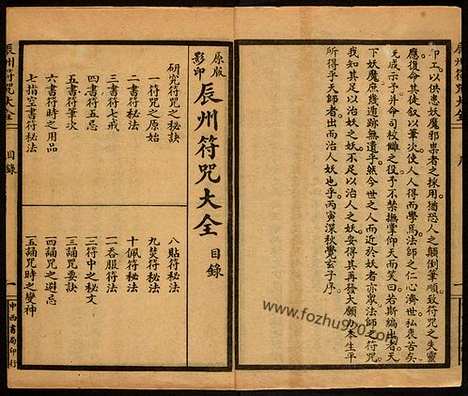 印工以供患妖魔邪祟者之採用猶恐人之顛倒筆順致符咒之失靈
應復命其徒叙以筆次使人人得而學焉法師之仁心濟世私衷苦矣
下妖魔庶幾遁跡無遺乎然今世之人而近於妖者亦衆法師之符咒
其足以治妖之妖不足以治人之妖安得其再發大願力本生平
所得乎天師者出而治人妖也乎丙寅深秋覺玄子序
辰州符咒大全
目錄
一
中西書局印行
原版
影印
辰州符咒大全
目錄
研究符咒之秘訣
一符咒之原始
二書符秘法
三書符七戒
四書符五忌
五書符筆次
六書符時之用品
七指空書符秘法
八貼符秘法
九焚符秘法
十佩符秘法
一吞服符法
二符中之秘文
三誦咒要訣
四誦咒之避忌
五誦咒時之變神
辰州符咒大全
www.fozhu920.com